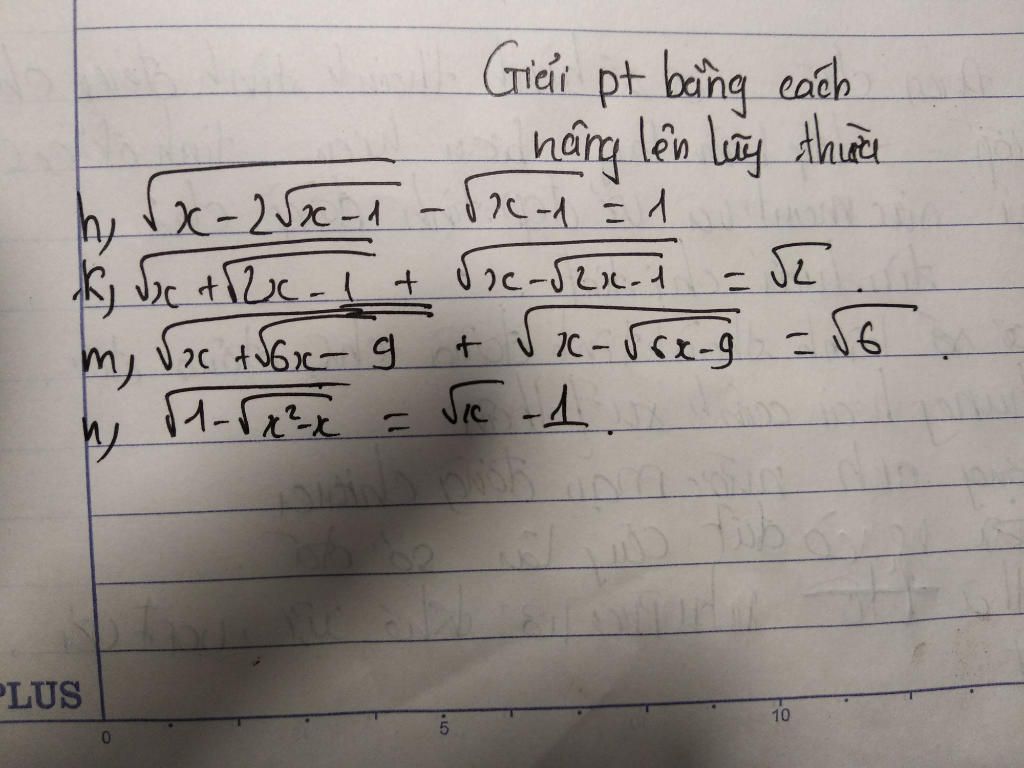 Giải pt bằng cách
nâng lên lũy thừa
h, √(x - 2√(x - 1)) - √(x - 1) = 1
k, √(x + √(2x - 1)) + √(x - √(2x - 1)) = √2.
m, √(x + √(6x - 9)) + √(x - √(6x - 9)) = √6.
n, √(1 - √(x² - x)) = √x - 1.
PLUS
0 5 10